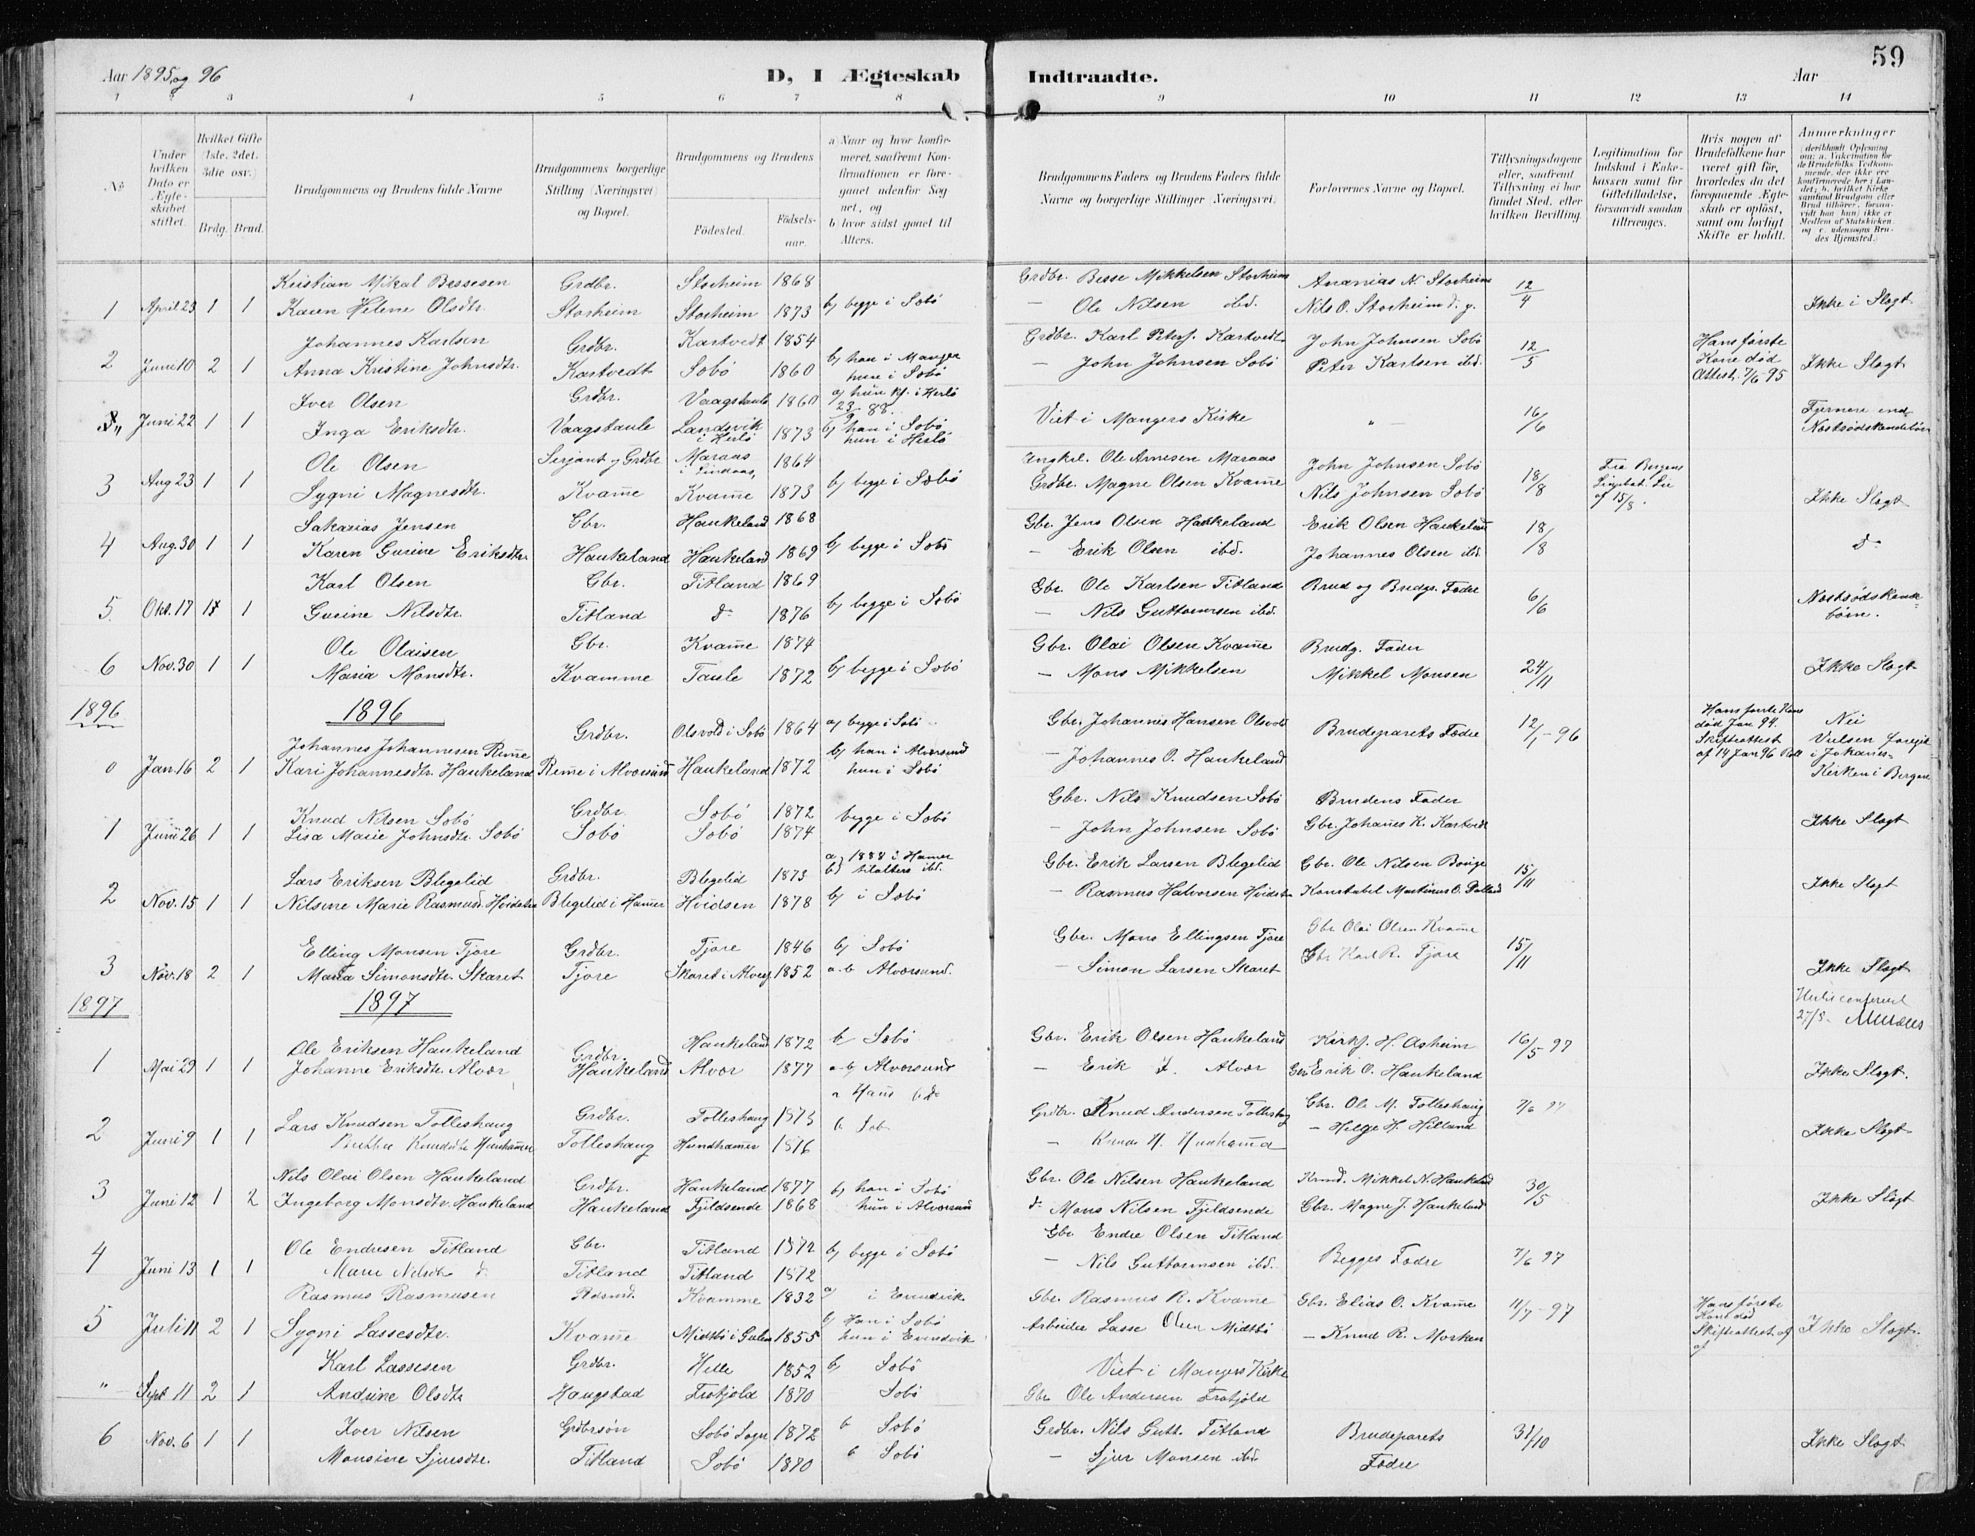 Aar 1895 og 96
D, I Ægteskab Indtraadte.
Aar
59
1 2 3 4 5 6 7 8 9 10 11 12 13 14
No
Under hvilken Dato er Ægteskabet stiftet.
Hvilket Gifte (1ste, 2det, 3die osv.)
Brdg. Brud.
Brudgommens og Brudens fulde Navne
Brudgommens borgerlige Stilling (Næringsvei) og Bopæl.
Brudgommens og Brudens
Fødested.
Fødselsaar.
a) Naar og hvor konfirmeret, saafremt Konfirmationen er foregaaet udenfor Sognet, og
b) hvor sidst gaaet til Alters.
Brudgommens Faders og Brudens Faders fulde Navne og borgerlige Stillinger (Næringsvei).
Forlovernes Navne og Bopæl.
Tillysningsdagene eller, saafremt Tillysning ei har fundet Sted, efter hvilken Bevilling.
Legitimation for Indskud i Enkekassen samt for Giftetilladelse, forsaavidt saadan tiltrænges.
Hvis nogen af Brudefolkene har været gift før, hvorledes da det foregaaende Ægteskab er opløst, samt om lovligt Skifte er holdt.
Anmerkninger
Kristian Mikal Bessesen Grdbr. Storheim 1868 Grdbr. Besse Mikkelsen Storheim Ananias N. Storheim
1 April 23 1 1 Karen Helene Olsdtr. Storheim Storheim 1873 b) begge i Sobö — Ole Nilsen ibd. Nils O. Storheim d. y. 12/4 Ikke i Slægt
Johannes Karlsen Grdbr. Kartvedt 1854 Grdbr. Karl Peters. Kartvedt John Johnsen Sobö Hans første
2 Juni 10 2 1 Anna Kristine Johnsdtr. Kartvedt Sobö 1860 b) han i Manger hun i Sobö — John Johnsen Sobö Peter Karlsen ibd. 12/5 Kone død Attest. 7/6 95 Ikke Slægt
Iver Olsen Grdbr. Vaagstaule 1860 a) hun kf. i Herlö 23/9 88.
" Juni 22 1 1 Inga Eriksdtr. Vaagstaule Landsvik i Herlö 1873 b) han i Sobö hun i Herlö Viet i Mangers Kirke " — 16/6 Fjernere end Næstsødskendebörn
Ole Olsen Serjant og Grdbr Maraas i Lindaas 1864 Ole Arnesen Maraas John Johnsen Sobö
3 Aug 23 1 1 Sygni Magnesdtr. Kvam̄e Kvam̄e 1873 b) begge i Sobö Grdbr. Magne Olsen Kvam̄e Nils Johnsen Sobö 18/8 Fra Bergens af 15/8. Ikke Slægt
Sakarias Jensen Gbr. Haukeland 1868 Gbr. Jens Olsen Haukeland Erik Olsen Haukeland
4 Aug. 30 1 1 Karen Gurine Eriksdtr. Haukeland Haukeland 1869 b) begge i Sobö — Erik Olsen ibd. Johannes Olsen ibd 18/8 d°
Karl Olsen Gbr. Titland 1869 Gbr. Ole Karlsen Titland Brud og Brudgs. Fader
5. Okt. 17 1 1 Gurine Nilsdtr. Titland d° 1876 b) begge i Sobö — Nils Guttormsen ibd. 6/6 Næstsødskendebörn.
Ole Olaisen Gbr. Kvam̄e 1874 Gbr. Olai Olsen Kvam̄e Brudg. Fader
6 Nov. 30 1 1 Maria Monsdtr. Kvamme Taule 1872 b) begge i Sobö — Mons Mikkelsen Mikkel Monsen 24/11 Ikke Slægt
1896 1896
Johannes Johannesen Rem̄e Grdbr. Olsvold i Sobö 1864 a) begge i Sobö Gbr. Johannes Hansen Olsvold Brudeparets Fædre 12/1-96 Hans første Kone død Jan 94. Nei
0 Jan. 16 2 1 Kari Johannesdtr. Haukeland Rem̄e i Alversund Haukeland 1872 b) han i Alversund hun i Sobö — Johannes O. Haukeland Skifteattest af 14 Jan 96 Vielsen foregik i Johanneskirken i Bergen
Knud Nilsen Sobö Grdbr. Sobö 1872 Gbr. Nils Knudsen Sobö Brudens Fader
1 Juni 26 1 1 Lisa Marie Johnsdtr. Sobö Sobö Sobö 1874 begge i Sobö — John Johnsen Sobö Gbr. Johan̄es K. Kartvedt Ikke Slægt
Lars Eriksen Blegelid Grdbr. Blegelid 1873 a) 1888 i Hamer b) tilalters ibd. Gbr. Erik Larsen Blegelid Gbr. Ole Nilsen
2 Nov. 15 1 1 Nilsine Marie Rasmusd. Hvidsten Blegelid i Ham̄er Hvidsen 1878 b) i Sobö — Rasmus Halvorsen Hvidsten Konstabel Martinus O. 15/11 Ikke Slægt
Elling Monsen Tjore Grdbr. Tjore 1846 b) Sobö Gbr. Mons Ellingsen Tjore Gbr Olai Olsen Kvam̄e
3 Nov. 18 2 1 Maria Simonsdtr. Skaret Tjore Skaret i Alvers 1852 a-b Alversund. — Simon Larsen Skaret Gbr Karl R. Tjore 15/11 Ikke Slægt
1897 1897 Hertil conferert 27/8.
Ole Eriksen Haukeland Grdbr. Haukeland 1872 b Sobö Gbr. Erik Olsen Haukeland Kirks. H. Asheim 16/5-97
1 Mai 29 1 1 Johanne Eriksdtr. Alvær Haukeland Alvær 1877 a-b Alversund — Erik I. Alvær Gbr Erik O. Haukeland Ikke Slægt.
Lars Knudsen Tolleshaug Grdbr. Tolleshaug 1873 Grdbr. Knud Andersen Tolleshaug Gbr. Ole M. Tolleshaug 7/6 97
2 Juni 9 1 1 Knudsdtr Hundhamer Tolleshaug Hundhamer 1876 b. Sob — Knud H. Hundham̄er — Helge H. Hilland Ikke Slægt
Nils Olai Olsen Haukeland Grdbr. Haukeland 1877 b) han i Sobö Gbr. Ole Nilsen Haukeland Mikkel N. Haukeland
3 Juni 12 1 2 Ingeborg Monsdtr. Haukeland Haukeland Fjeldsende 1868 hun i Alversund d° Mons Nilsen Fjeldsende Gbr. Magne J. Haukeland 30/5 Ikke Slægt
Ole Endresen Titland Gbr. Titland 1872 b) begge i Sobö Gbr Endre Olsen Titland
4 Juni 13 1 1 Marie Nilsdtr d° Titland Titland 1872 — Nils Guttormsen ibd. Begges Fædre 7/6 97
Rasmus Rasmusen Kvamme 1832 a) i Evindvik Gbr. Rasmus R. Kvam̄e Gbr. Elias O. Kvam̄e 11/7-97 Hans første Kone død
5 Juli 11 2 1 Sygni Lassesdtr. Kvam̄e Midtbö i Gulen 1855 b) Han i Sobö hun i Evindvik Arbeider Lasse Olsen Midtbö — Knud R. Morken Skifteattest af Ikke Slægt.
Karl Lassesen Grdbr. Helle 1852 b) Sobö Viet i Mangers Kirke
" Sept. 11 2 1 Andrine Olsdtr Haugstad Frotjold 1870 Sobö Gbr Ole Andersen Frotjold
6 Nov. 6 1 1 Iver Nilsen Grdbrsön Sobö Sogn 1872 b Sobö Grdbr. Nils Gutt. Titland Brudeparets 31/10 Ikke Slægt
Monsine Sjursdtr. Titland Sobö 1870 b Sobö — Sjur Monsen ibd. Fædre